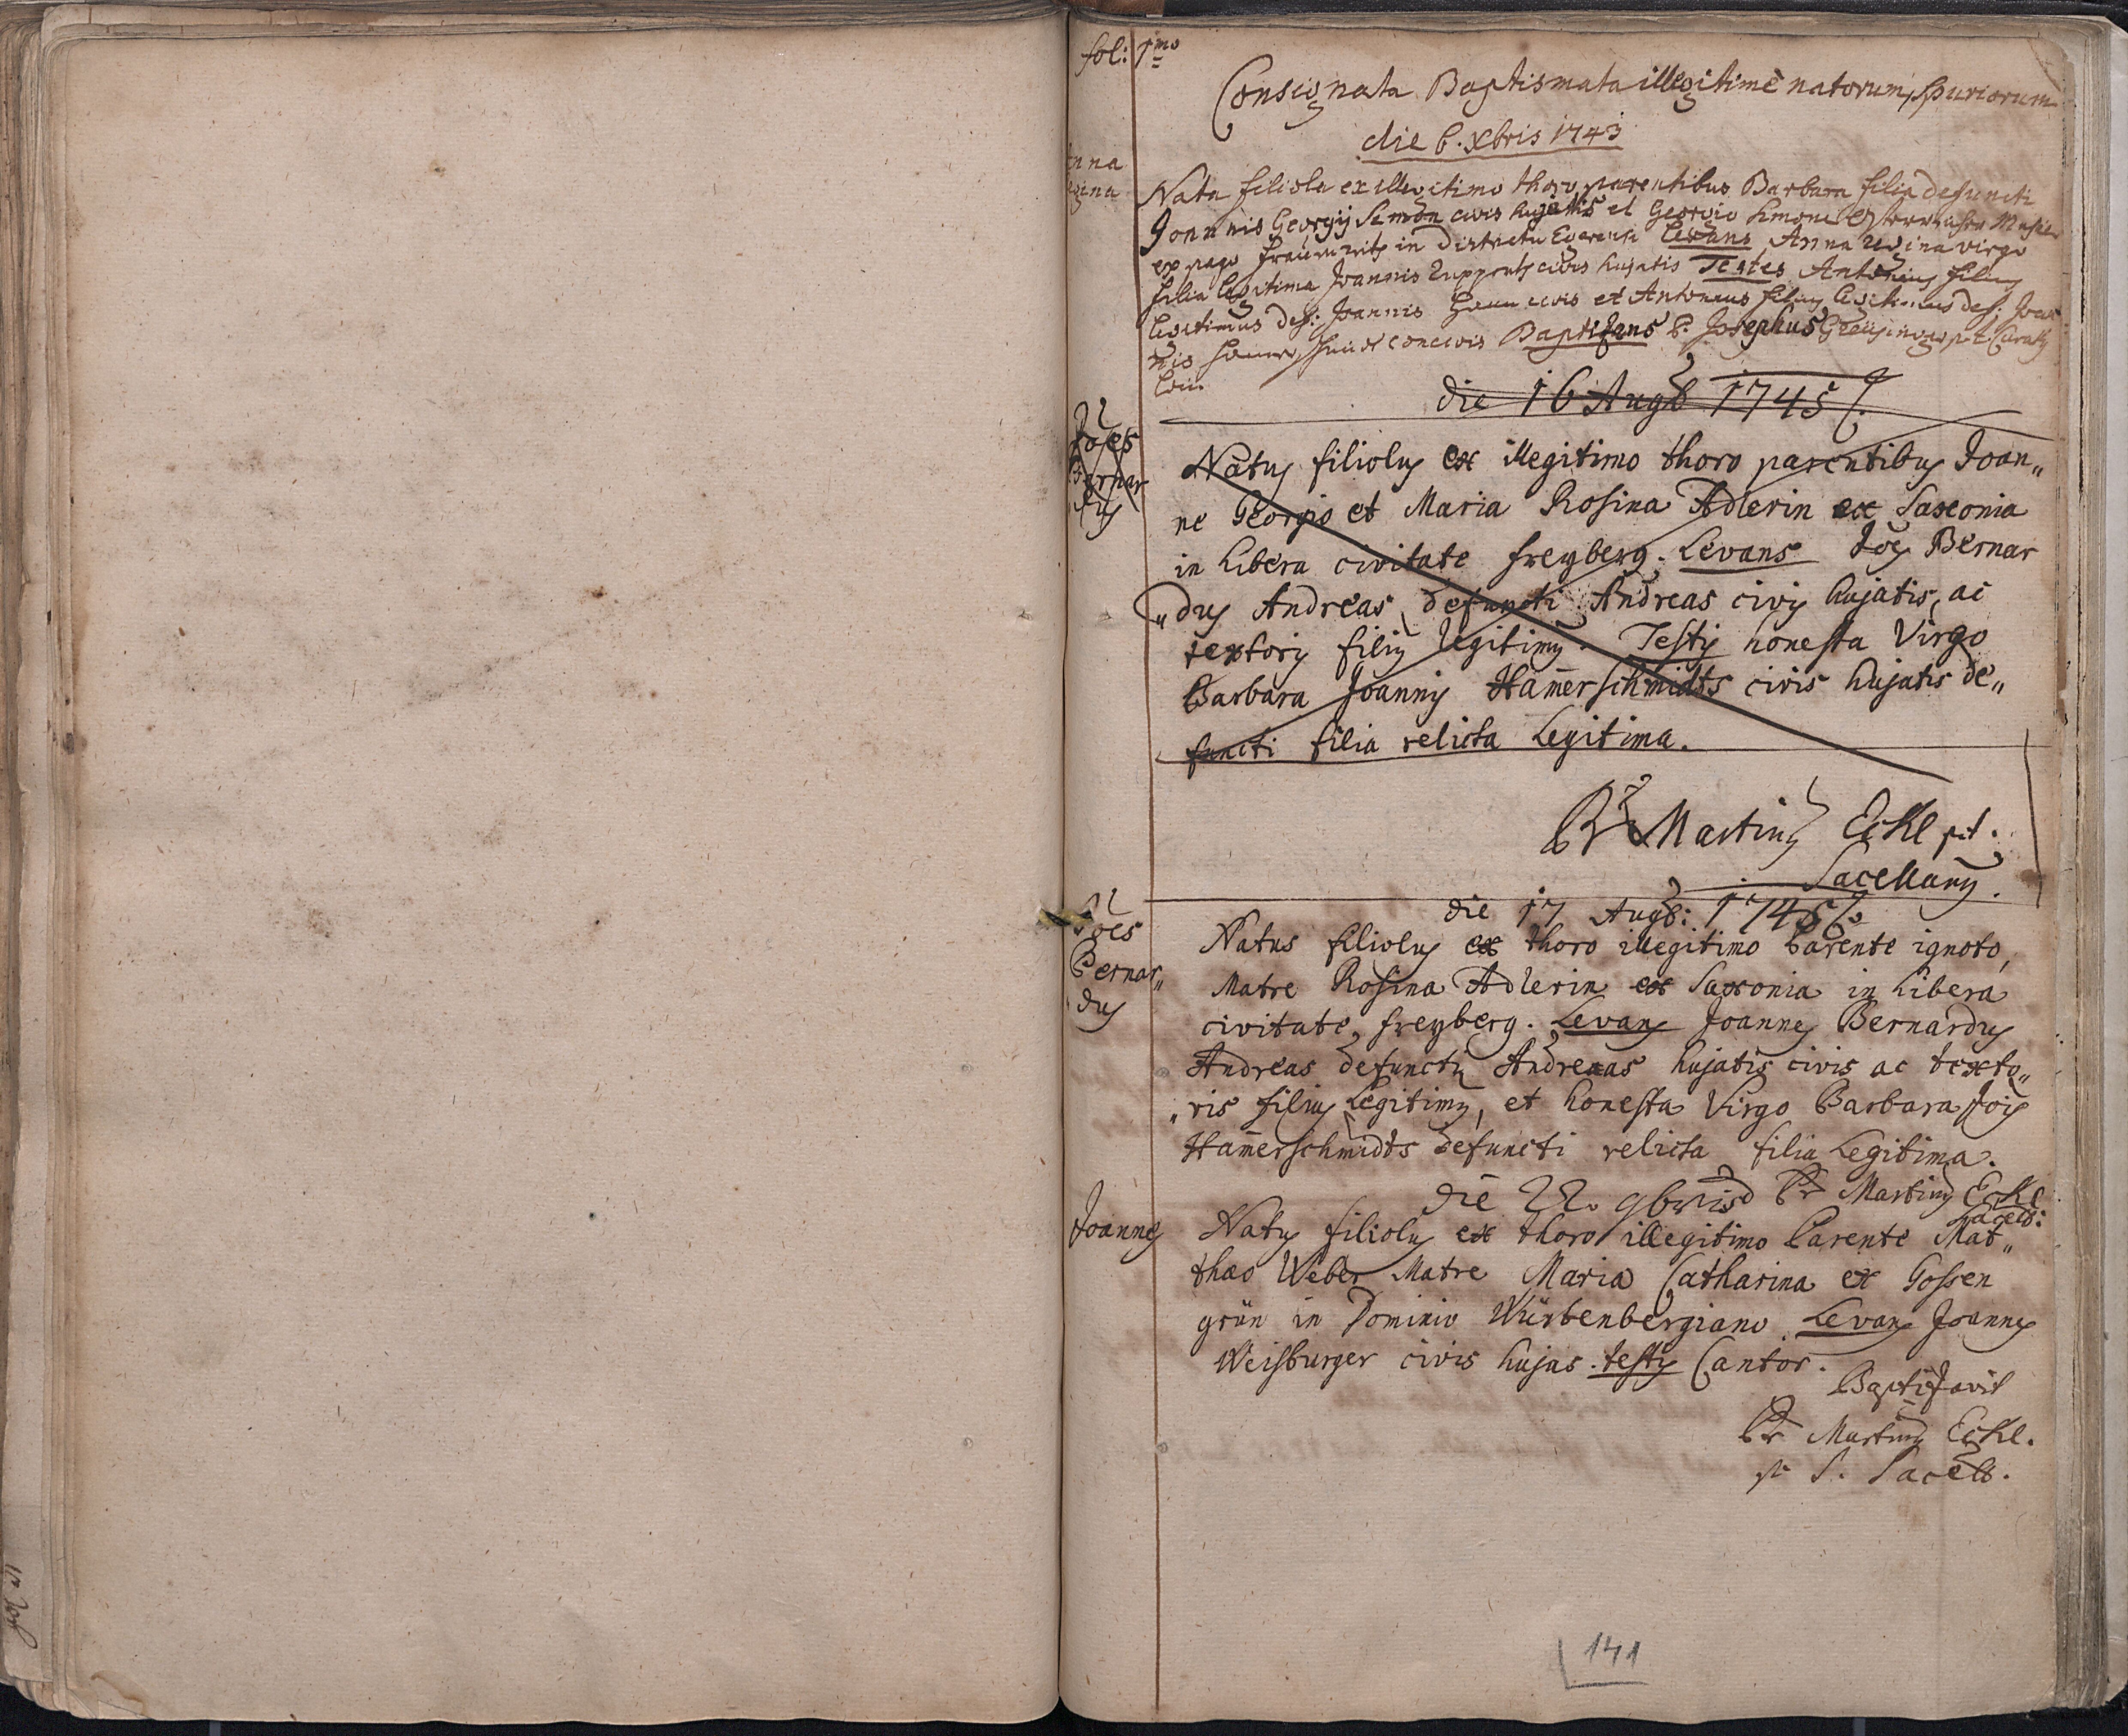 fol: 1mo
Consignata Baptismata illegitimè natorum, spuriorum
die 6. Xbris 1743
nna
gina
Nata filiola ex illegitimo thoro parentibus Barbara filia defuncti
Joannis Georgij Simon civis hujatis et Georgio Simone
ex pago in districtu Egrensi Levans Anna Regina virgo
filia legitima Joannis civis hujatis Testes Antonius filius
legitimus def: Joannis civis et Antonius filius legitimus def: Joan
nis concivis Baptizans P. Josephus p.t. 
Loci.
die 16 Augb 1745
Jões
Bernar
dus
Natus filiolus ex illegitimo thoro parentibus Joan„
ne Georgio et Maria Rosina Adlerin ex Saxonia
in libera civitate freyberg. Levans Jões Bernar
„dus Andreas defuncti Andreas civis hujatis, ac
textoris filius legitimus. Testis honesta Virgo
Barbara Joannis Ham̄erschmidts civis hujatis de„
functi filia relicta Legitima.
Pr Martinus Eckl p.t.
Sacellanus.
die 17 Augb: 1745
Jões
Bernar„
dus
Natus filiolus ex thoro illegitimo Parente ignoto,
Matre Rosina Adlerin ex Saxonia in libera
civitate, freyberg. Levans Joannes Bernardus
Andreas defuncti Andreas hujatis civis ac texto„
„ris filius Legitimus, et honesta Virgo Barbara Jois
Ham̄erschmidts defuncti relicta filia Legitima.
Pr Martinus Eckl
Sacell:
die 22. 9bris
Joannes
Natus filiolus ex thoro illegitimo Parente Mat„
thæo Weber Matre Maria Catharina ex Gossen
grün in Dominio Würtenbergiano Levans Joannes
Weisburger civis hujas. testis Cantor.
Baptizavit
Pr Martinus Eckl.
p. t. Sacell.
141